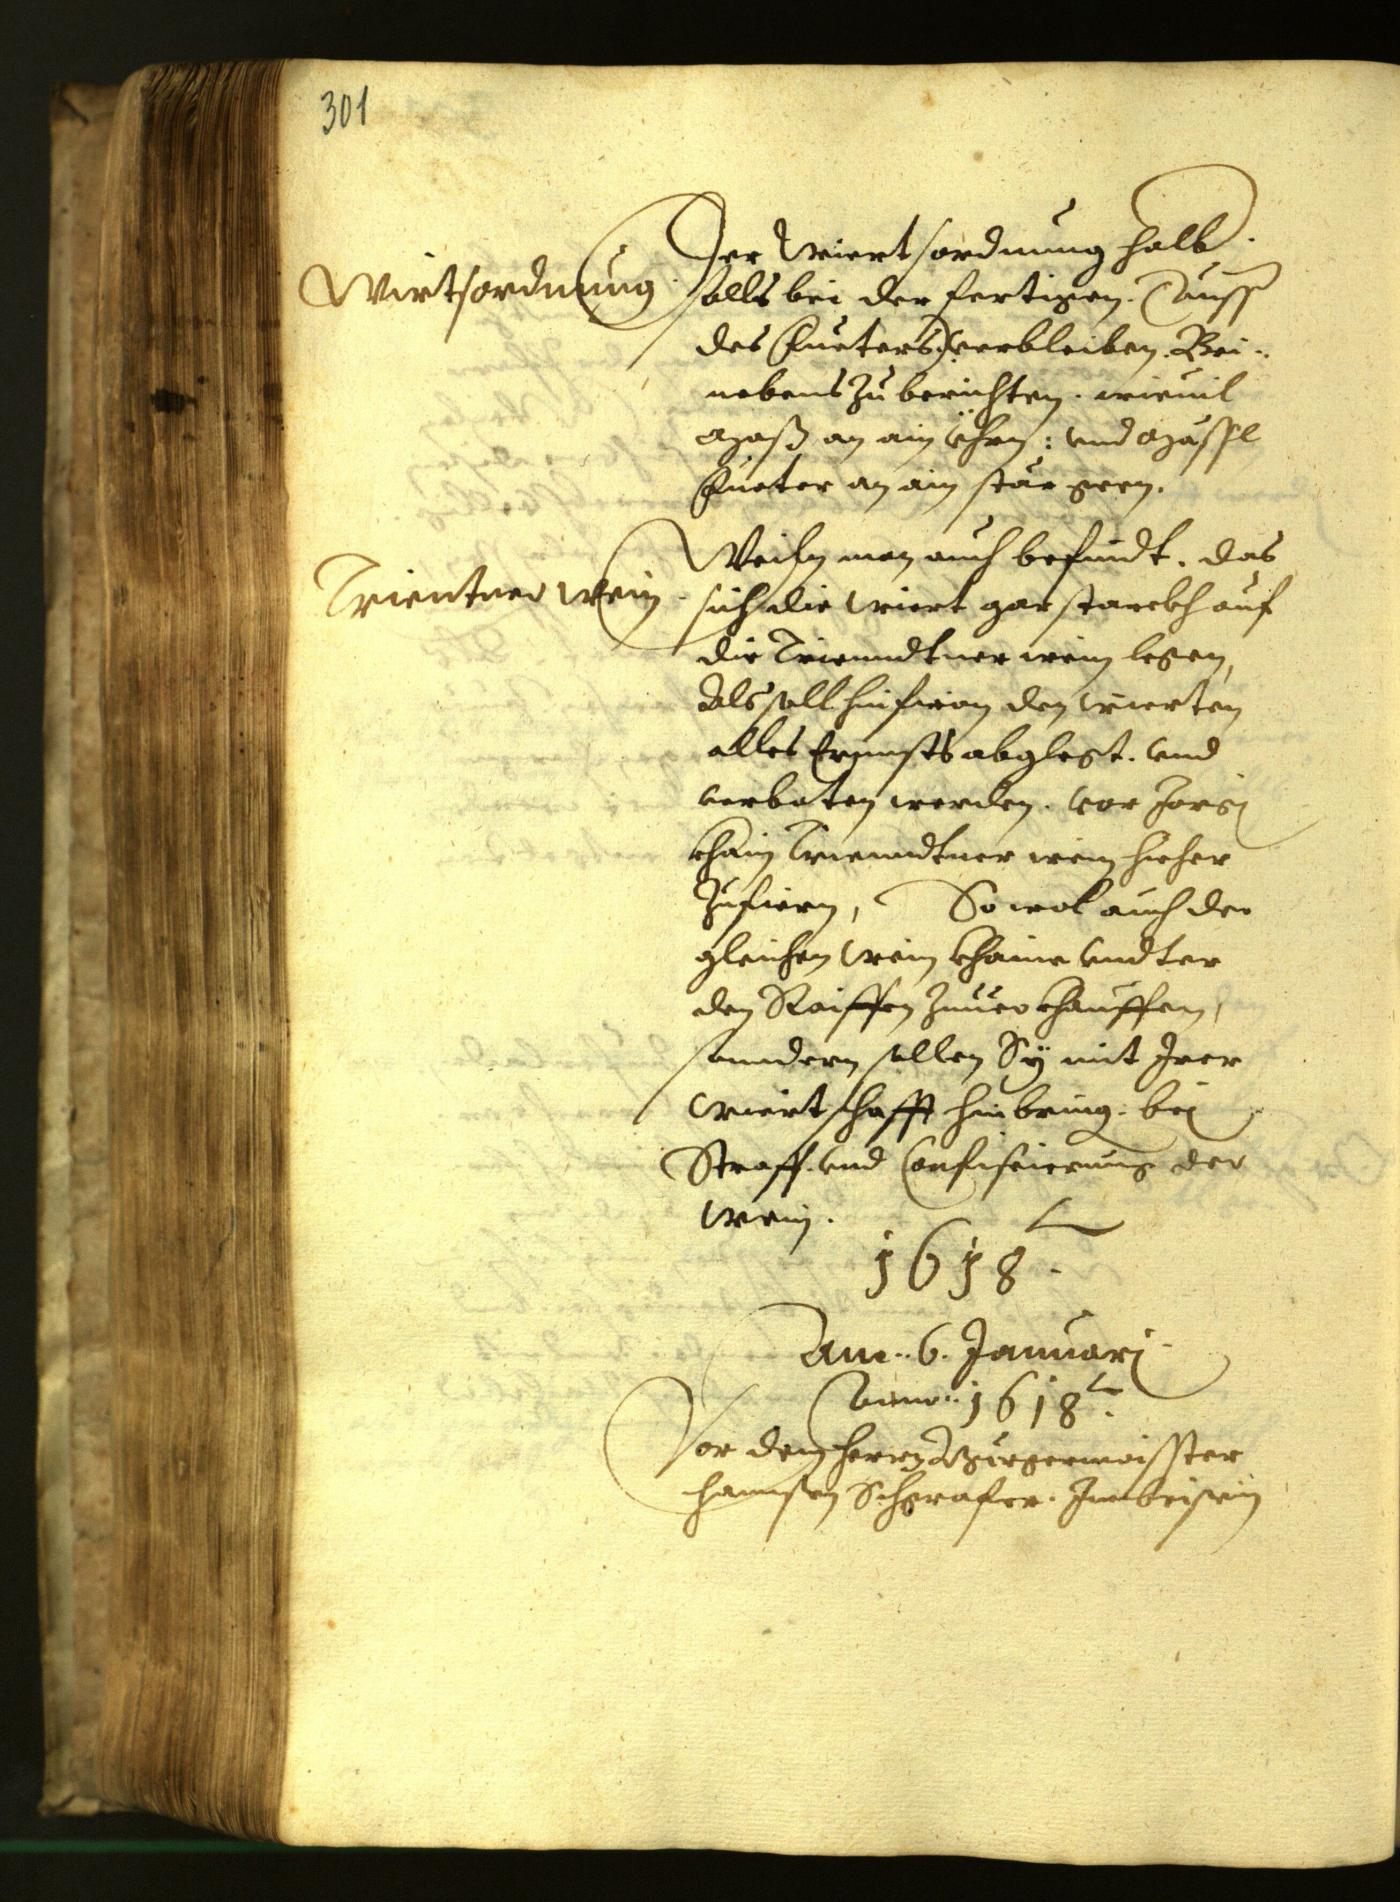 301
Wirtsordnung
Der Wiertsordnung halb
solls bei der fertigen (Ausser
des Fueters) verbleiben. Bei-
nebens zu berichten. wieuil
Maß an ain Ÿhrn: und Mässl
Fueter an ain stär geen.
Trientner Wein
Weiln man auch befindt. das
sich die Wiert gar starckh auf
die Trienndtner wein legen,
Als soll hinfiran den Wierten
alles Ernnsts abglegt. und
verboten werden. vor Jorgi
khain Trienndtner wein hieher
Zufiern, So wol auch der
gleichen Wein khaine undter
den Raiffen Zuuerkhauffen,
sonndern sollen Sÿ mit Irer
Wiertschafft hinbring. bei
Straff. und Confiscierung der
Wein.
1618
Am. 6. Januarj
Anno: 1618
Vor dem herrn Burgermaisster
hannsen Schgrafer. In beisein